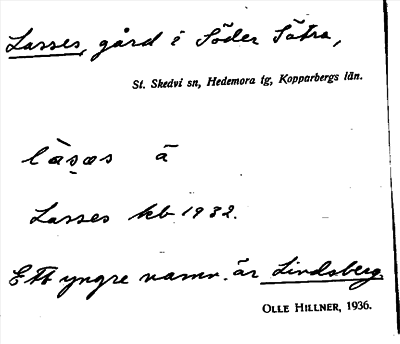 Lasses, gård i Söder Sätra,
St. Skedvi sn, Hedemora tg, Kopparbergs län.
làsas ā
Lasses kb 1932.
Ett yngre namn är Lindsberg
OLLE HILLNER, 1936.